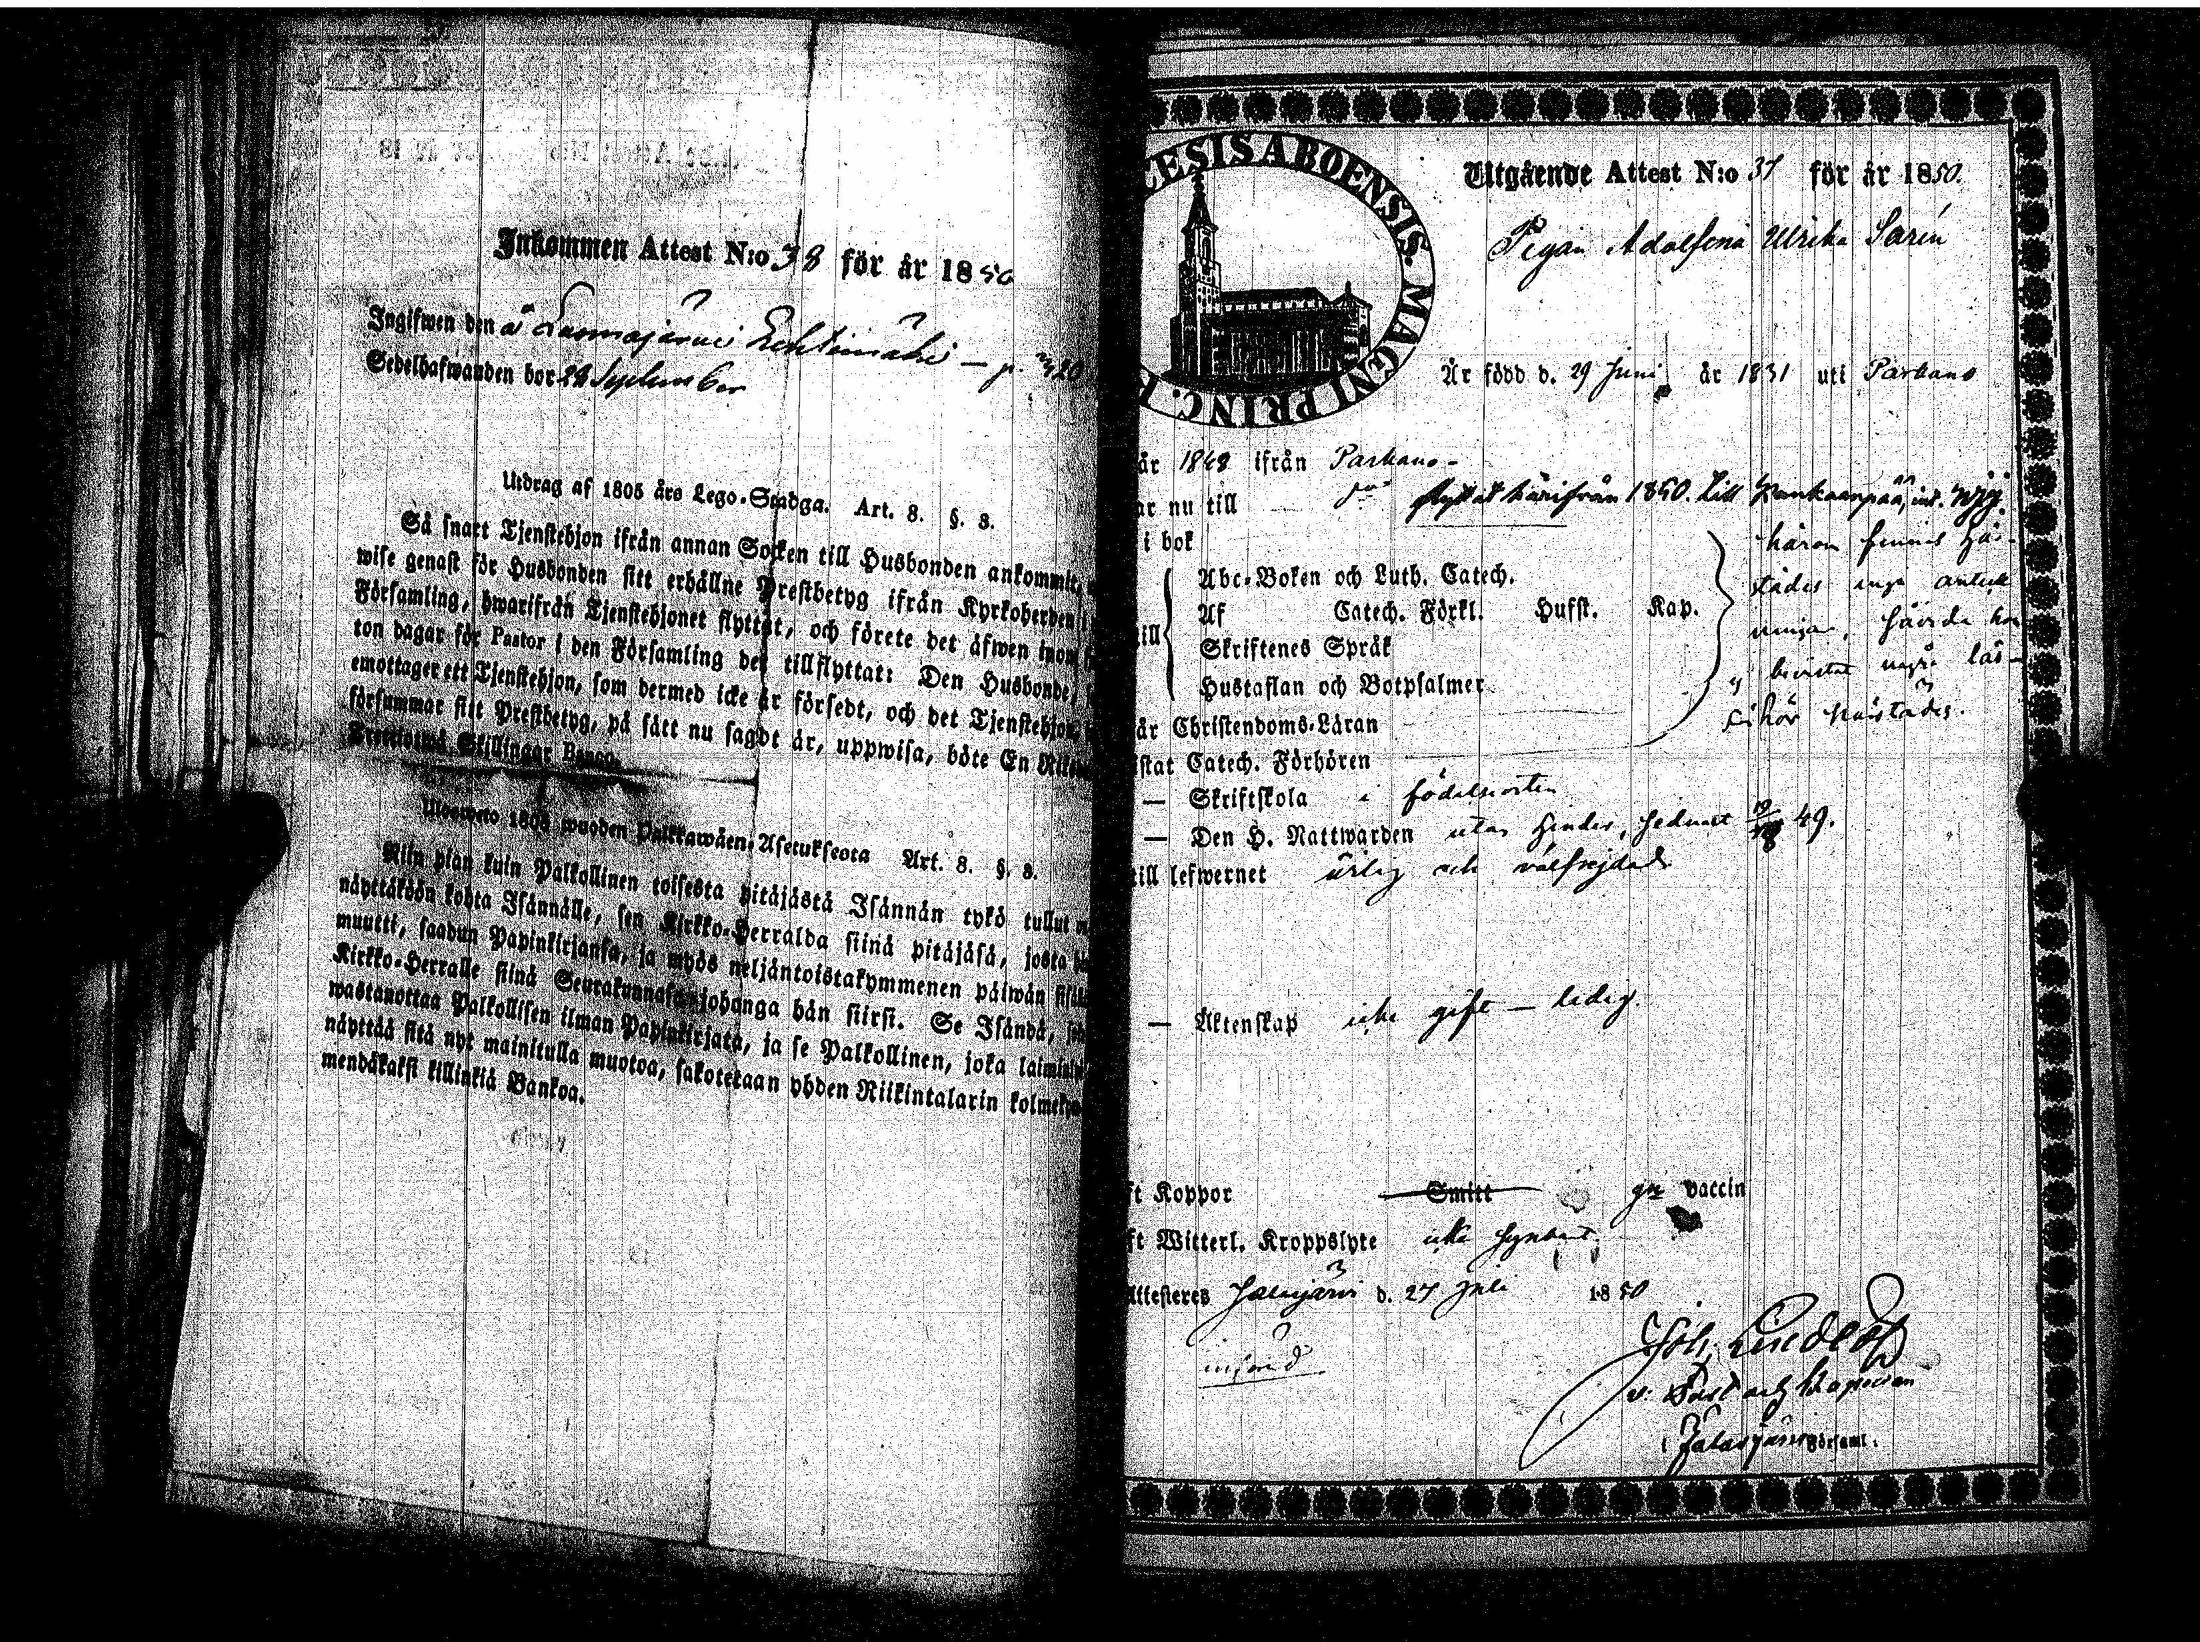 Inkommen Attest N:o 38 för år 1850
Ingifwen den
Sedelhafwanden bor 22 September
Utdrag af 1805 års Lego-Stadga. Art. 8. §. 8.
Så snart Tjenstehjon ifrån annan Socken till Husbonden ankommit,
wise genast för Husbonden sitt erhållne Prestbetyg ifrån Kyrkoherden i
Församling, hwarifrån Tjenstehjonet flyttat, och förete det äfwen inom
ton dagar för Pastor i den Församling det tillflyttat: Den Husbonde,
emottager ett Tjenstehjon, som dermed icke är försedt, och det Tjenstehjon,
försummar sitt Prestbetyg, på sätt nu sagdt är, uppwisa, böte En
Trettiotwå Skillingar Banco.
1805 wuoden Palkkawäen-Asetuksesta Art. 8. §. 8.
Niin pian kuin Palkollinen toisesta pitäjästä Isännän tykö tullut
näyttäköön kohta Isännälle, sen Kirkko-Herralda siinä pitäjäsä, josta
muutti, saadun Papinkirjansa, ja myös neljäntoistakymmenen päiwän
Kirkko-Herralle siinä johonga hän siirsi. Se Isändä,
wastanottaa Palkollisen ilman Papinkirjata, ja se Palkollinen, joka
näyttää sitä nyt mainitulla muotoa, sakotetaan yhden Riikintalarin
mendäkaksi killinkiä Bankoa.
ABOENSIS. MAGNI PRINC.
Utgående Attest N:o 37 för år 1850.
Pigan Adolfina Ulrika Sarén
Är född d. 29 Juni år 1831 uti Parkano
år 1848 ifrån Parkano
ar nu till flyttat härifrån 1850. till Kankaanpää,
i bok
Abc-Boken och Luth. Catech.
Af Catech. Förkl. Husst. Kap.
Skriftenes Språk
Hustaflan och Botpsalmer
härom finnes här-
städes inga anteck
ningar,
bevistat några läs-
härstädes.
är Christendoms-Läran
istat Catech. Förhören
— Skriftskola i födelseorten
— Den H. Nattwarden 49.
till lefwernet ärlig och välfrejdad
— Äktenskap icke gift — ledig.
ft Koppor Smitt vaccin
ft Witterl. Kroppslyte icke synbart.
Attesteras Jalasjärvi d. 27 Juli 1850
Joh. Lindelöf
v. Past och Kapellan
i Jalasjärvi Församl.